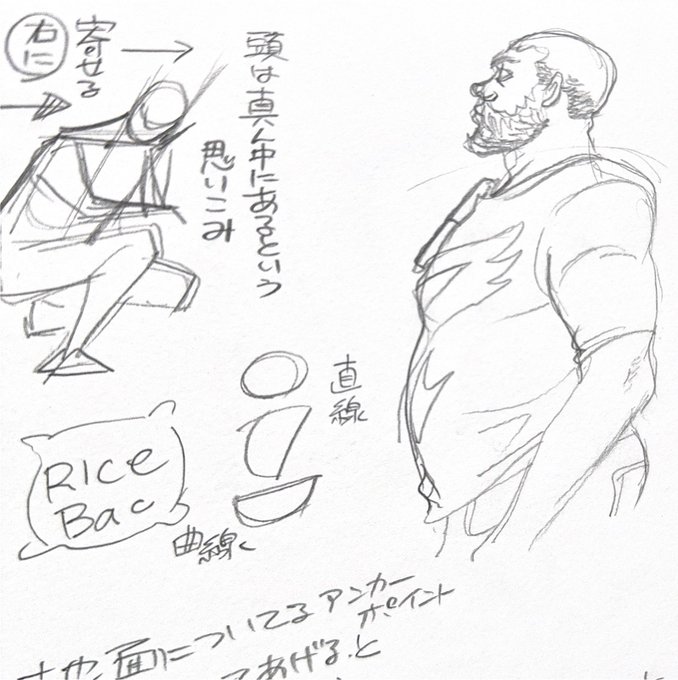 右に
寄せる
頭は真ん中にあるという
思いこみ
直線
RICe
Bac
曲線
地面についてるアンカー
ポイント
てあげると